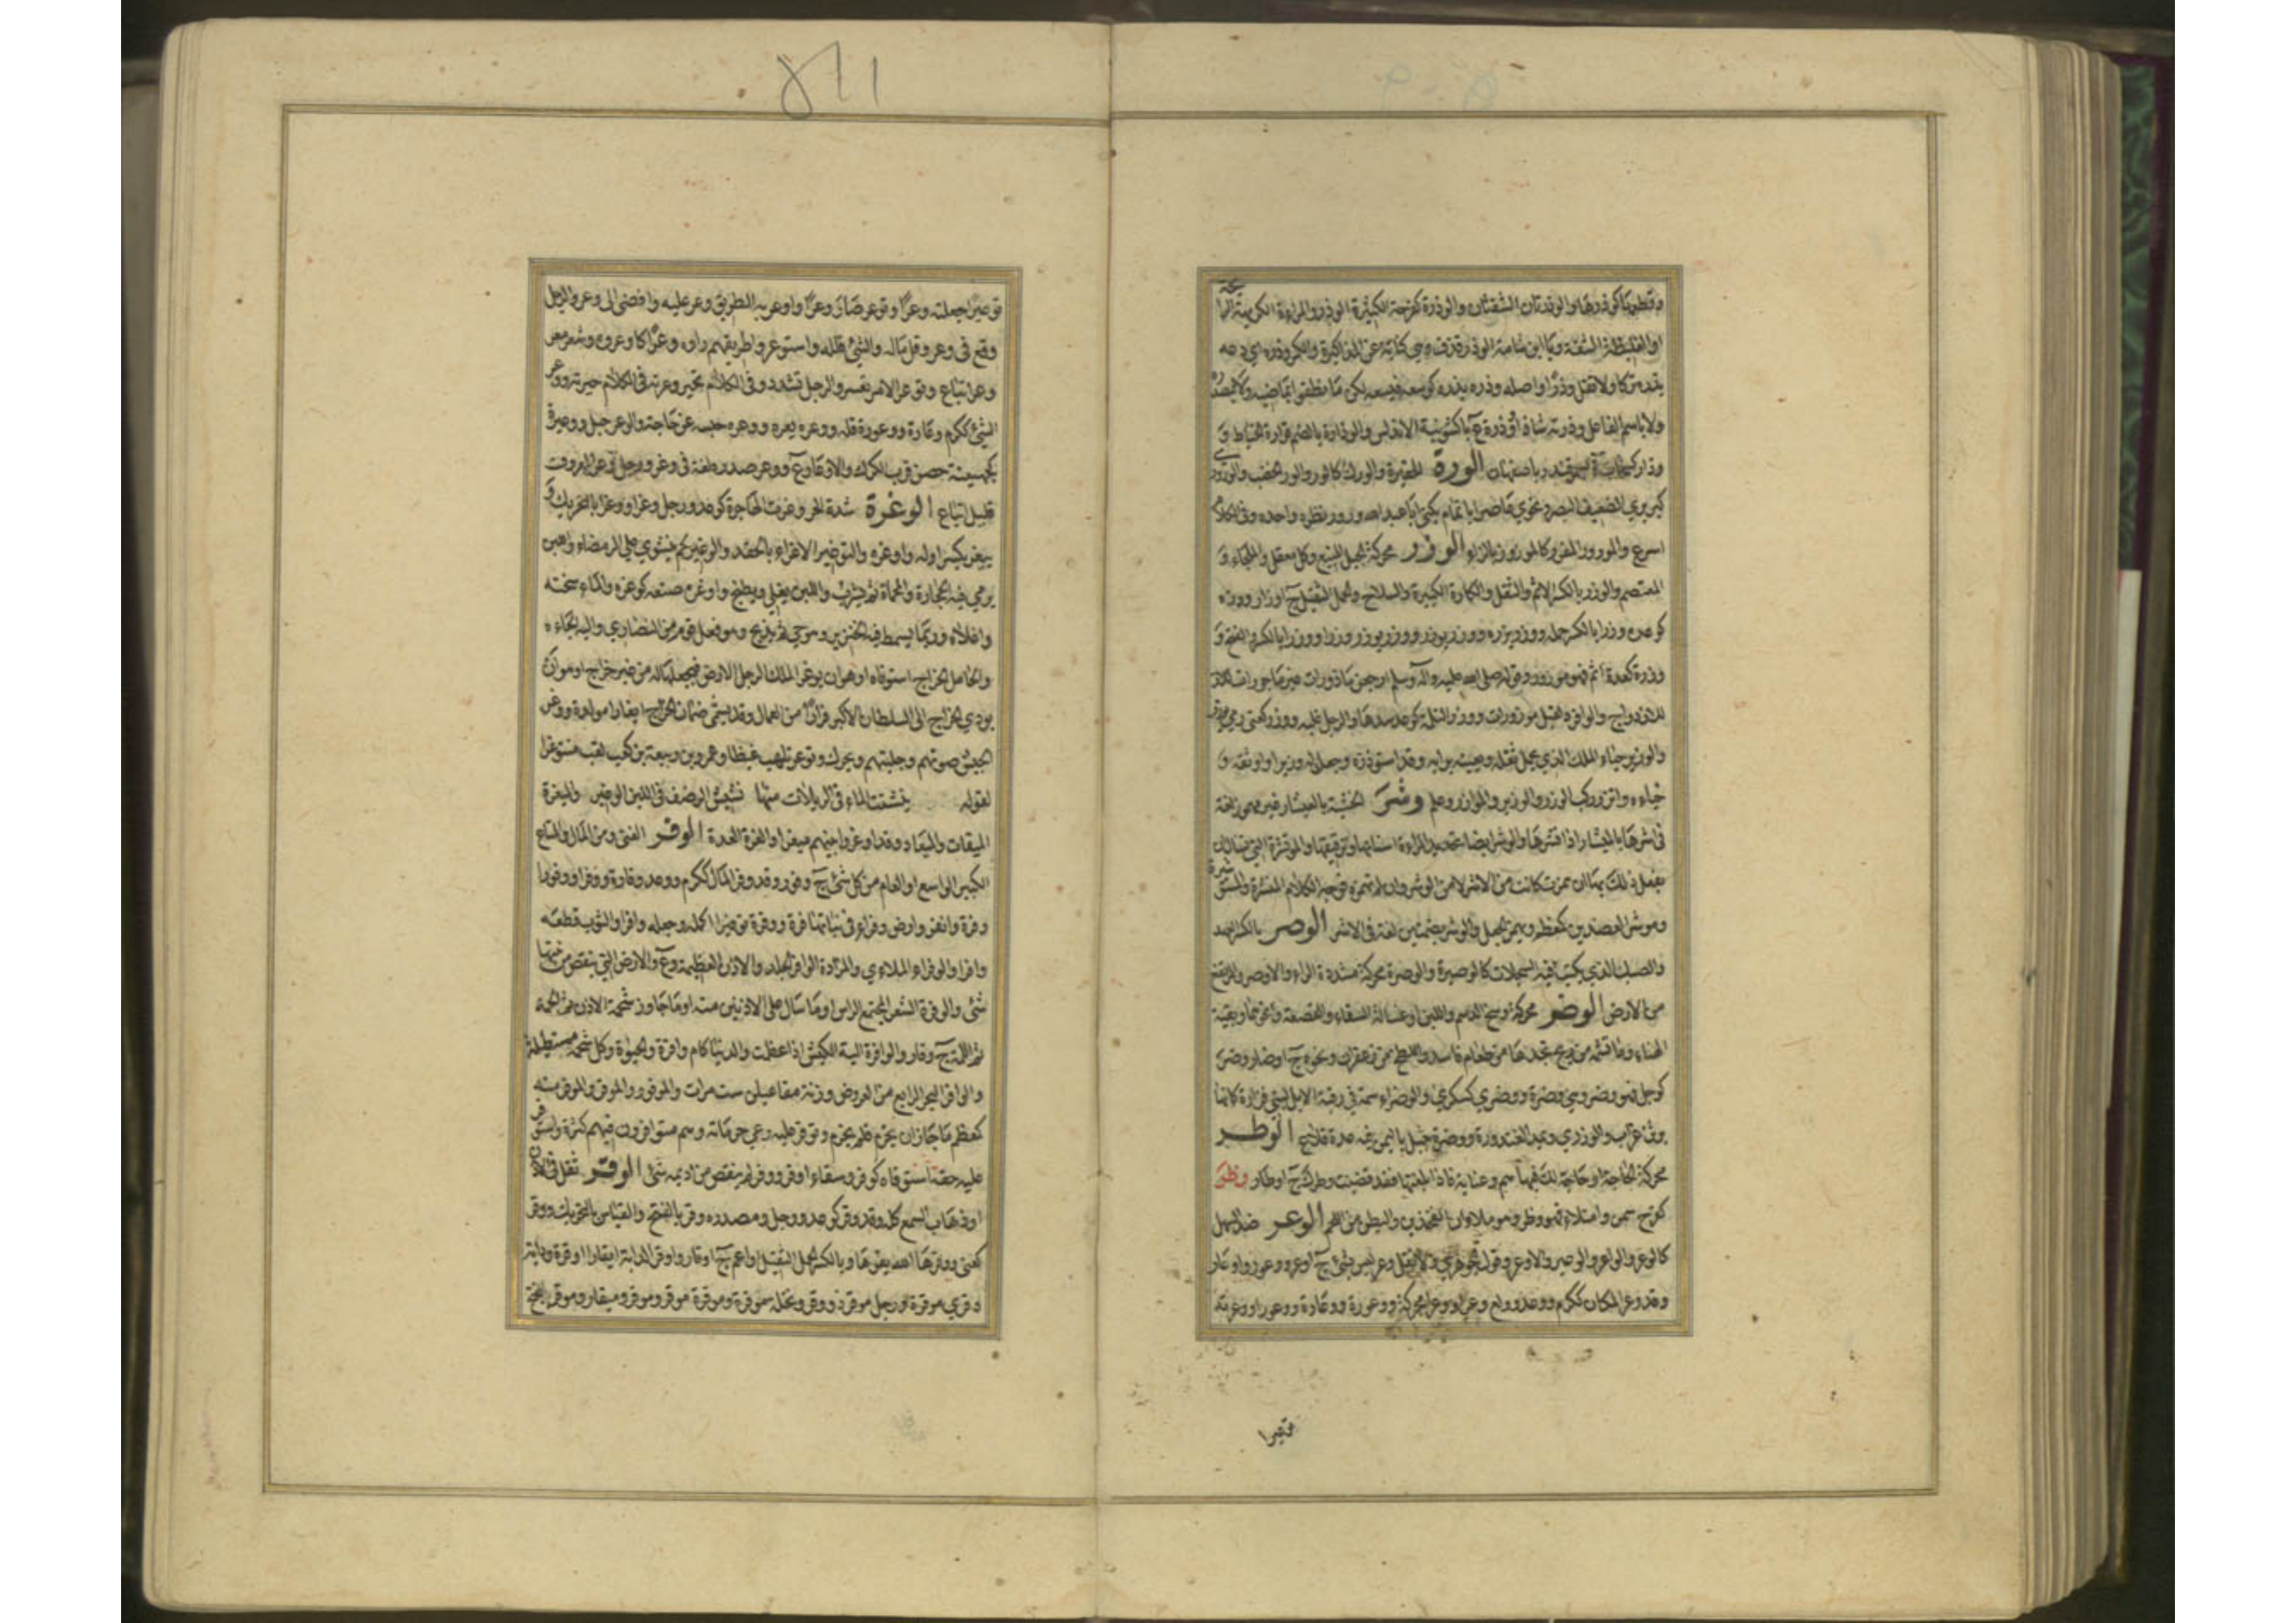 وقطعها كوذرها والوذرتان الشفتان والوذرة كفرحة الكثيرة الوذر والمراءة الكريهة الرائحة
او الغليظة الشفة ويا ابن شامة الوذر قذف وهي كناية عن المذاكير والكمر وذره اي دعه
يذره تركا ولا تقل وذرا واصله وذره يذره كوسعه يسعه لكن ما نطقوا بماضيه ولا بمصدره
ولا باسم الفاعل وذرته شاذ او وذرة ع باكشونية الاندلس والوذارة بالضم قوارة الخياط و
وذار كسحاب ة بسمرقند وباصفهان الورة الحفيرة والورك كالور والور الخصب والورور
كبربري الضعيف البصر ونحوي عاصر ابا تمام يكنى ابا عبد الله وورور نظره واحده وفي الكلام
اسرع والمورور المغرر كالمورور بالزاء الوزر محركة الجبل المنيع وكل معقل والملجاء و
المعتصم والوزر بالكسر الاثم والثقل والكارة الكبيرة والسلاح والحمل الثقيل ج اوزار ووزره
كوعده وزرا بالكسر حمله ووزر يزره ووزر يوزر ووزر يوزر وزرا ووزرا بالكسر والفتح و
وزرة كعدة اثم فهو موزور وقوله صلى الله عليه وآله وسلم ارجعن مازورات غير ماجورات
للازدواج ولو افرد لقيل موزورات ووزر الثلمة كوعد سدها والرجل غلبه ووزر كعني رمي بوزر
والوزير حباء الملك الذي يحمل ثقله ويعينه برايه وقد استوزره وجعل له وزيرا واوزره
خباءه واتزر ركب الوزر والوزير والموازر وعلم وشر الخشبة بالميشار غير مهموز لغة
في اشرها بالمئشار اذا نشرها والوشر ايضا تحديد المراءة اسنانها وترقيقها والموتشرة التي تسال ان
يفعل ذلك بها ان همزت كانت من الاشر لا من الوشر وان لم تهمزه فوجه الكلام المتشرة والمستوشرة
وموشر العضدين كمعظم ويهمز الجعل والوشر بضمتين لغة في الاشر الوصر بالكسر العهد
والصك الذي يكتب فيه السجلات كالوصيرة والوصرة محركة مشددة الراء والاوصر المرتفع
من الارض الوضر محركة وسخ الدسم واللبن او غسالة السقاء والقصعة ونحوهما وبقية
الهناء وما تشمه من ريح تجدها من طعام فاسد واللطخ من زعفران ونحوه ج اوضار وضر
كوجل فهو وضر وهي وضرة ووضرى كسكرى والوضراء سمة في رقبة الابل لبني فزارة كانها
برثن غراب والوزري وعبد الغندورة ووضرة جبل باليمن فيه عدة قلاع الوطر
محركة الحاجة او حاجة لك فيها هم وعناية فاذا بلغتها فقد قضيت وطرك ج اوطار وظر
كفرح سمن وامتلاء فهو وظر وهو ملاءن الفخذين والبطن من اللحم الوعر ضد السهل
كالوعر والواعر والوعير والاوعر وقول الجوهري ولا تقل وعر ليس بشئ ج اوعر ووعور واوعار
وقد وعر المكان ككرم ووعد وولع وعرا ووعرا محركة ووعورة ووعارة ووعورا ووعرته
توعيرا
توعيرا جعلته وعرا وتوعر صار وعرا واوعر به الطريق وعر عليه وافضى الى وعر والرجل
وقع في وعر وقل ماله والشئ قلله واستوعروا طريقهم راوه وعرا كاوعروه وشعر معر
وعر اتباع وتوعر الامر تعسر والرجل تشدد وفي الكلام تحير وعرته في الكلام حيرته ووعر
الشئ ككرم وعارة ووعورة قل ووعره يعره ووعره حبسه عن حاجته والوعر جبل ووعيرة
كجهينة حصن قرب الكرك والاوعار ع ووعر صدره لغة في وغر ورجل وعر المعروف
قليل اتباع الوغرة شدة الحر وغرت الهاجرة كوعد ووجل وغرا ووغرا بالتحريك و
ييغر بكسر اوله واوغره والتوغير الاغراء بالحقد والوغير لحم يشوي على الرمضاء واللبن
يرمي فيه الحجارة المحماة ثم يشرب واللبن يغلي ويطبخ واوغره صنعه كوغره والماء سخنه
واغلاه وربما يسمط فيه الخنزير وهو حي ثم يذبح وهو فعل قوم من النصارى واليه الجاءه
والعامل الخراج استوفاه او هو ان يوغر الملك الرجل الارض فيجعلها له من غير خراج او هو ان
يودي الخراج الى السلطان الاكبر فرارا من العمال وقد يسمى ضمان الخراج ايغارا مولدة ووغر
الجيش صوتهم وجلبتهم ويحرك وتوغر تلهب غيظا وعمرو بن ربيعة بن كعب لقب مستوغرا
لقوله ينش الماء في الربلات منها نشيش الرضف في اللبن الوغير والميغرة
الميقات والميعاد وقد اوغروا بينهم ميغرا والغرة العدة الوفر الغنى ومن المال والمتاع
الكثير الواسع او العام من كل شئ ج وفور وقد وفر المال ككرم ووعد وفارة ووفرا ووفورا
وفرة واتفر وارض وفراء في نباتها فرة ووفرة توفيرا اكمله وجعله وافرا والثوب قطعه
وافرا والوفراء الملاءى والمزادة الوافرة الجلد والاذن العظيمة وع والارض التي لم ينقص من نبتها
شئ والوفرة الشعر المجتمع على الراس او ما سال على الاذنين منه او ما جاوز شحمة الاذن ثم الجمة
ثم اللمة ج وفار والوافرة الية الكبش اذا عظمت والدنيا كام وافرة والحيوة وكل شحمة مستطيلة
والوافر البحر الرابع من العروض وزنه مفاعيلن ست مرات والموفور والموفر والموفر منه
كمعظم ما جاز ان يخرم فلم يخرم وتوفر عليه رعي حرماته وهم متوافرون فيهم كثرة واستوفر
عليه حقه استوفاه كوفر وسقاء اوفر ووفر لم ينقص من اديمه شئ الوقر ثقل في الاذن
او ذهاب السمع كله وقد وقر كوعد ووجل ومصدره وقر بالفتح والقياس بالتحريك ووقر
كعني ووقرها الله يقرها وبالكسر الحمل الثقيل او اعم ج اوقار واوقر الدابة ايقارا او قرة ودابة
وقرى موقرة ورجل موقر ذو وقر ونخلة موقرة وموقرة موقر وموقر وميقار وموقر بفتح